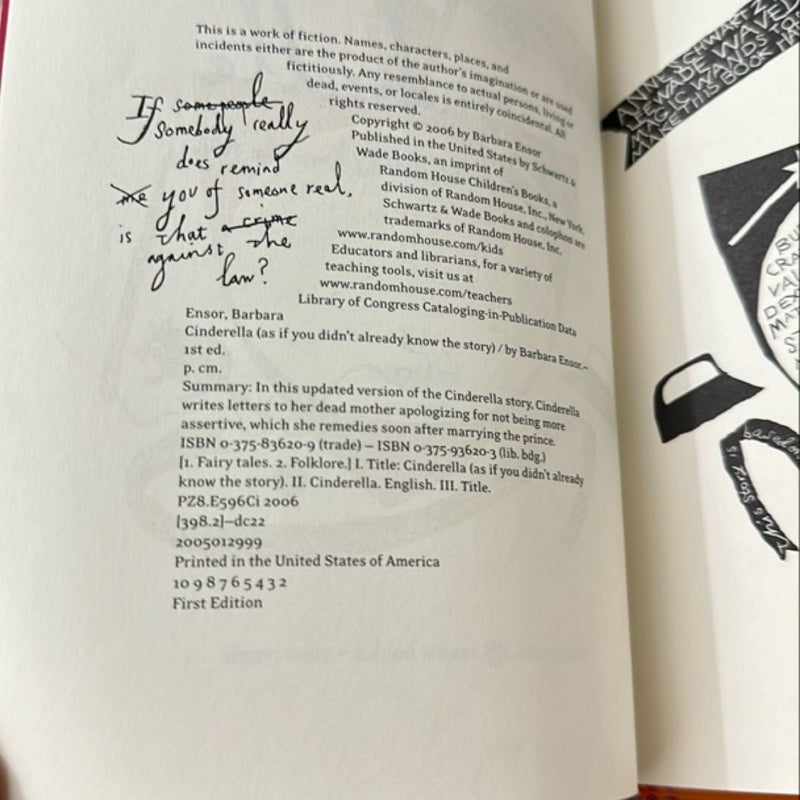 This is a work of fiction. Names, characters, places, and
incidents either are the product of the author's imagination or are used
fictitiously. Any resemblance to actual persons, living or
dead, events, or locales is entirely coincidental. All
rights reserved.
Copyright © 2006 by Barbara Ensor
Published in the United States by Schwartz &
Wade Books, an imprint of
Random House Children's Books, a
division of Random House, Inc., New York.
Schwartz & Wade Books and colophon are
trademarks of Random House, Inc.
www.randomhouse.com/kids
Educators and librarians, for a variety of
teaching tools, visit us at
www.randomhouse.com/teachers
Library of Congress Cataloging-in-Publication Data
If some people
Somebody really
does remind
me you of someone real,
is that a crime
against the
law?
Ensor, Barbara
Cinderella (as if you didn't already know the story) / by Barbara Ensor.–
1st ed.
p. cm.
Summary: In this updated version of the Cinderella story, Cinderella
writes letters to her dead mother apologizing for not being more
assertive, which she remedies soon after marrying the prince.
ISBN 0-375-83620-9 (trade) – ISBN 0-375-93620-3 (lib. bdg.)
[1. Fairy tales. 2. Folklore.] I. Title: Cinderella (as if you didn't already
know the story). II. Cinderella. English. III. Title.
PZ8.E596Ci 2006
[398.2]–dc22
2005012999
Printed in the United States of America
10 9 8 7 6 5 4 3 2
First Edition
ANNE SCHWARTZ
LEE WADE WAVED
MAGIC WANDS TO
MAKE THIS BOOK
this story is
based on